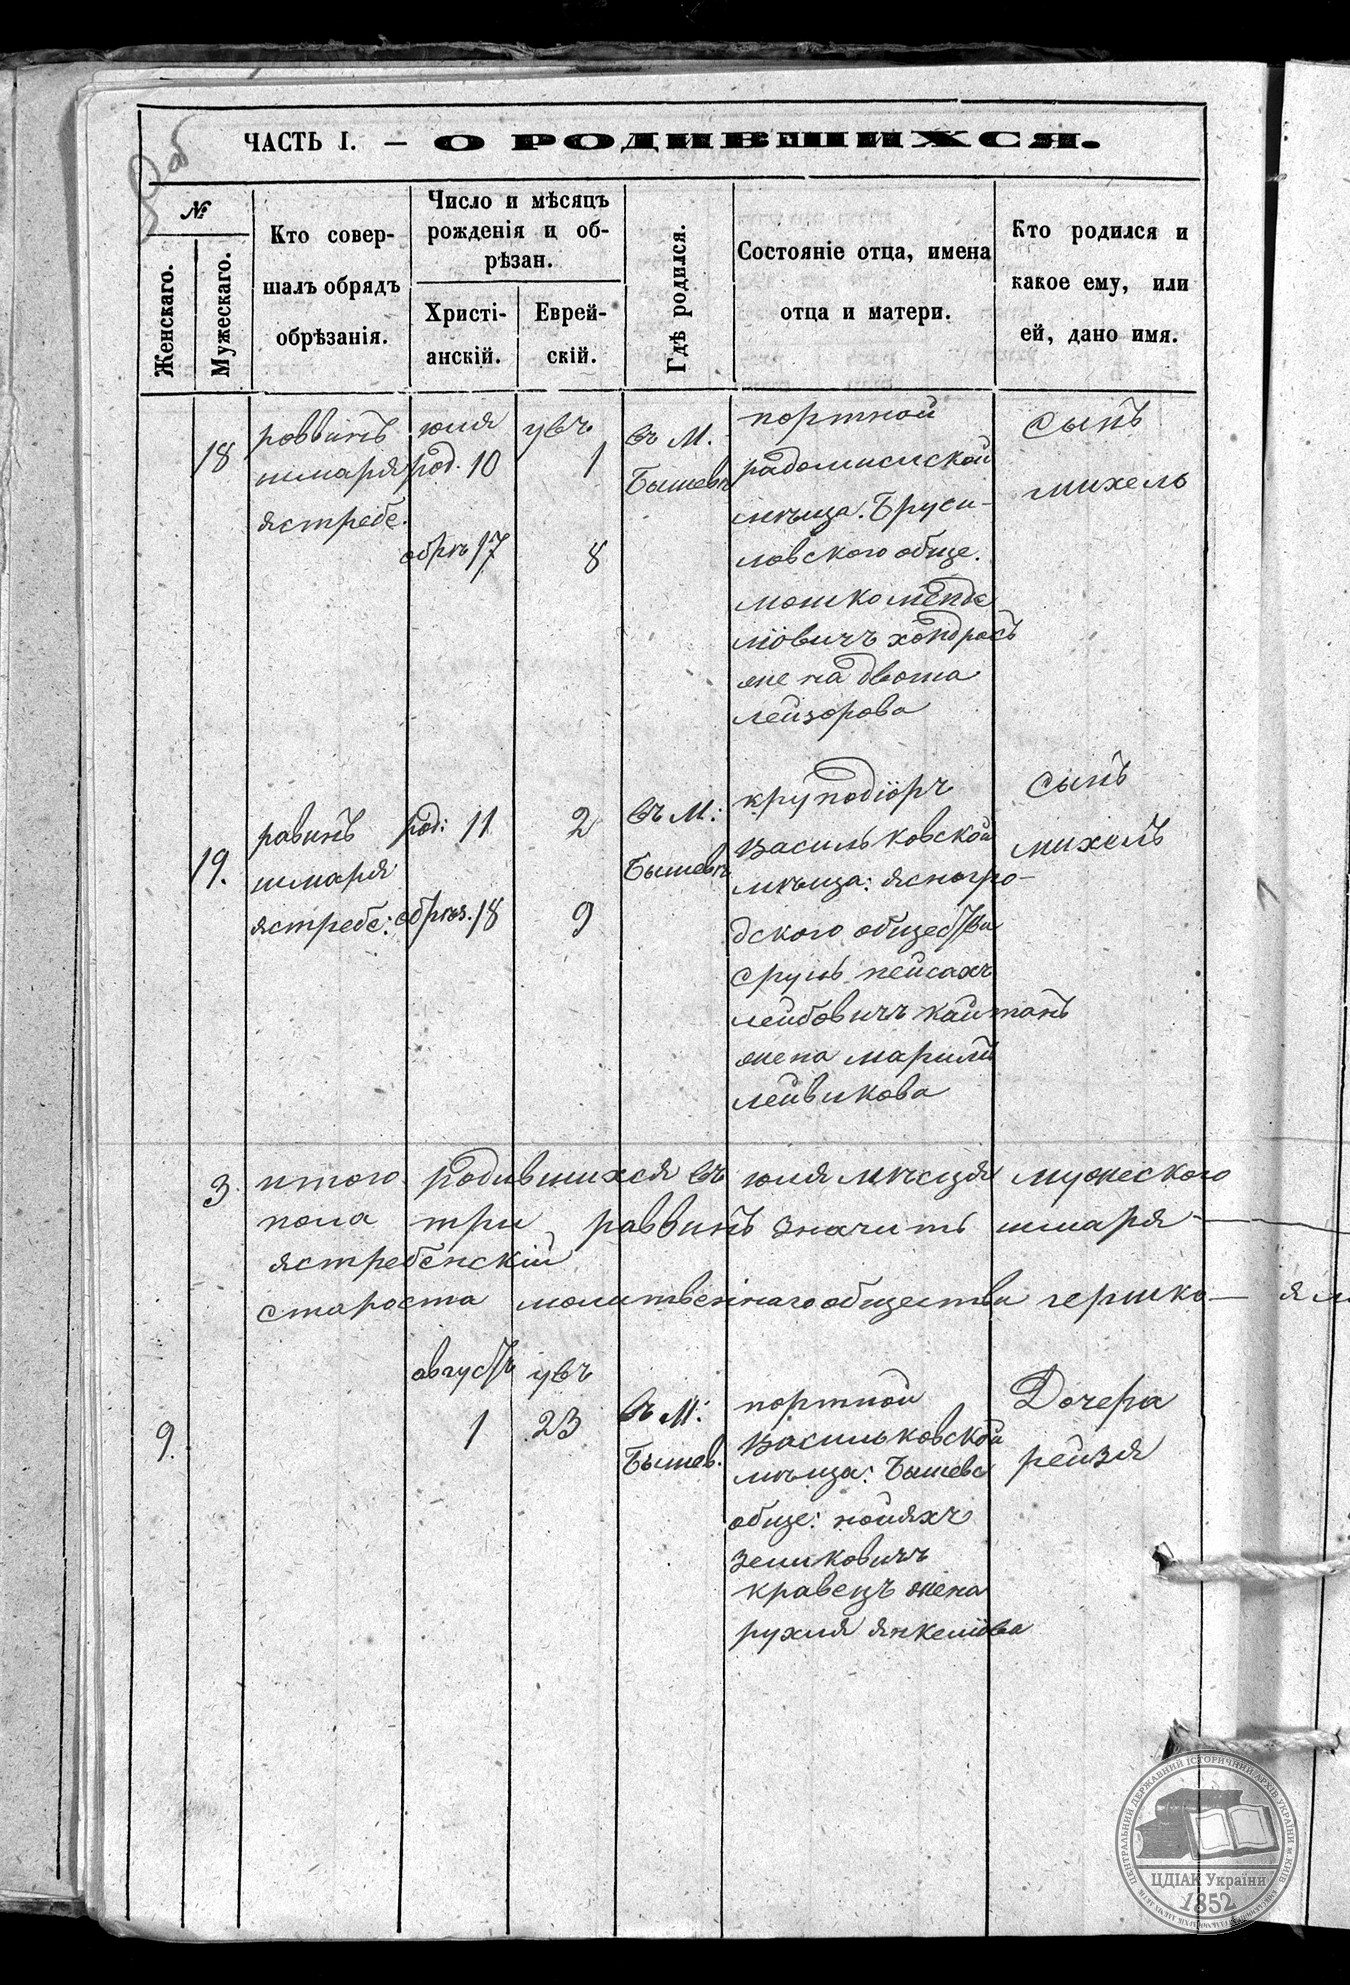 ЧАСТЬ I. — О РОДИВШИХСЯ.
№
Женскаго.
Мужескаго.
Кто совер-
шалъ обрядъ
обрѣзанія.
Число и мѣсяцъ
рожденія и об-
рѣзан.
Христі-
анскій.
Еврей-
скій.
Гдѣ родился.
Состояніе отца, имена
отца и матери.
Кто родился и
какое ему, или
ей, дано имя.
18
роввинъ
шмаря
ястребе.
юля
род. 10
обрѣ 17
увъ
1
8
въ М.
Бышевѣ
портной
радомислской
мѣща. Бруси-
ловского обще.
мошко менде
лiовичъ
жена двоша
лейзорова
сынъ
михель
19.
равинъ
шмаря
ястребе:
род: 11
обрѣз. 18
2
9
въ М:
Бышевѣ
круподiоръ
васильковской
мѣща: ясногро-
дского общества
сруль пейсахъ
лейбовичъ кайтанъ
жена марилъ
лейвикова
сынъ
михель
3. итого родившихся въ юля мѣсяця мужеского
пола три раввинъ значитъ шмаря
ястребенскiй
староста молитвеннаго общества гершко
августъ увъ
9.
1
23
въ М:
Бышев.
портной
васильковской
мѣща: Бышевс
обще: нойяхъ
зеликовичъ
кравецъ жена
рухля янкелiова
Дочера
рейзя
ЦЕНТРАЛЬНИЙ ДЕРЖАВНИЙ ІСТОРИЧНИЙ АРХІВ УКРАЇНИ М. КИЇВ
ЦДІАК України
1852